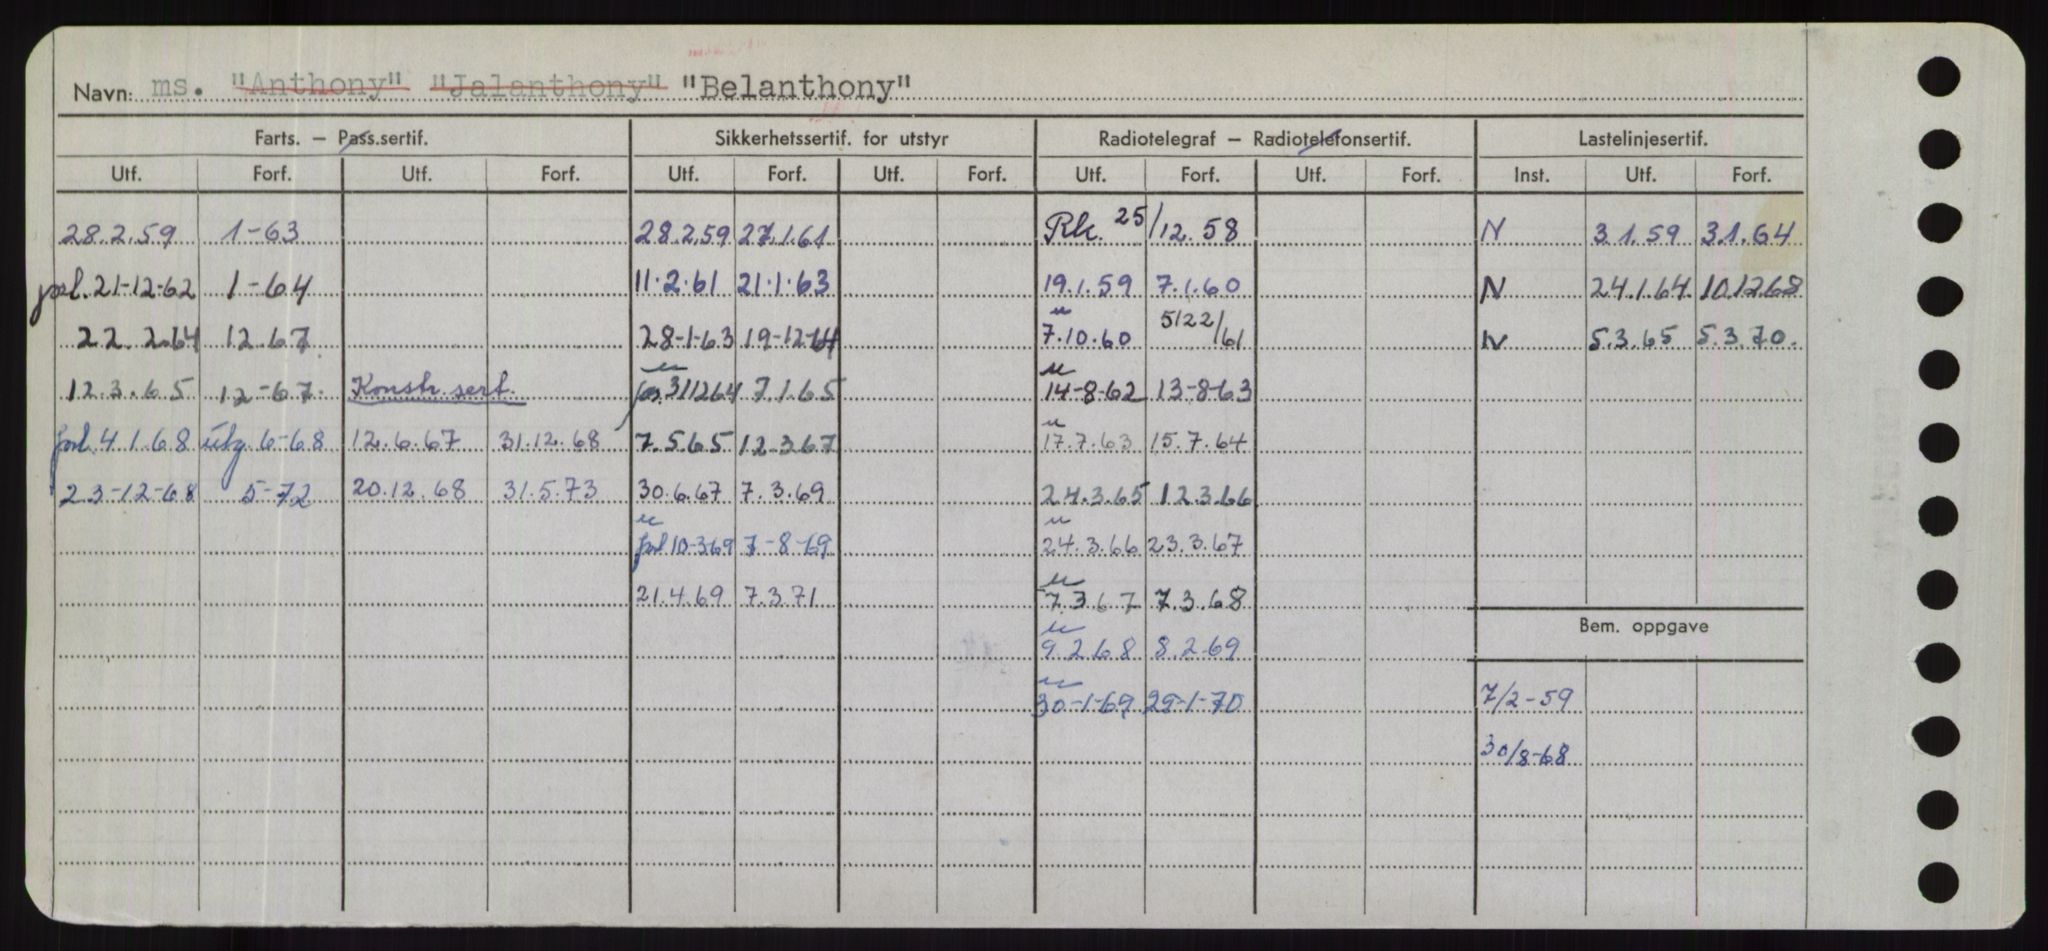 Navn: ms. "Anthony" "Jalanthony" "Belanthony"
Farts. — Pass.sertif. Sikkerhetssertif. for utstyr Radiotelegraf — Radiotelefonsertif. Lastelinjesertif.
Utf. Forf. Utf. Forf. Utf. Forf. Utf. Forf. Utf. Forf. Utf. Forf. Inst. Utf. Forf.
28.2.59 1-63 28.2.59 27.1.61 Rk. 25/12.58 N 3.1.59 3.1.64
21-12-62 1-64 11.2.61 21.1.63 19.1.59 7.1.60 N 24.1.64 10.12.68
22.2.64 12.67 28-1-63 19-12-64 7.10.60 5122/61 N 5.3.65 5.3.70.
12.3.65 12-67. Konstr. sert. 311264 7.1.65 14-8-62 13-8-63
forl. 4.1.68 utg. 6-68 12.6.67 31.12.68 7.5.65 12.3.67 17.7.63 15.7.64
23-12-68 5-72 20.12.68 31.5.73 30.6.67 7.3.69 24.3.65 12.3.66
forl 10-369 7-8-69 24.3.66 23.3.67
21.4.69 7.3.71 7.3.67 7.3.68
Bem. oppgave
9.2.68 8.2.69
30-1-69 29-1-70 7/2-59
30/8-68